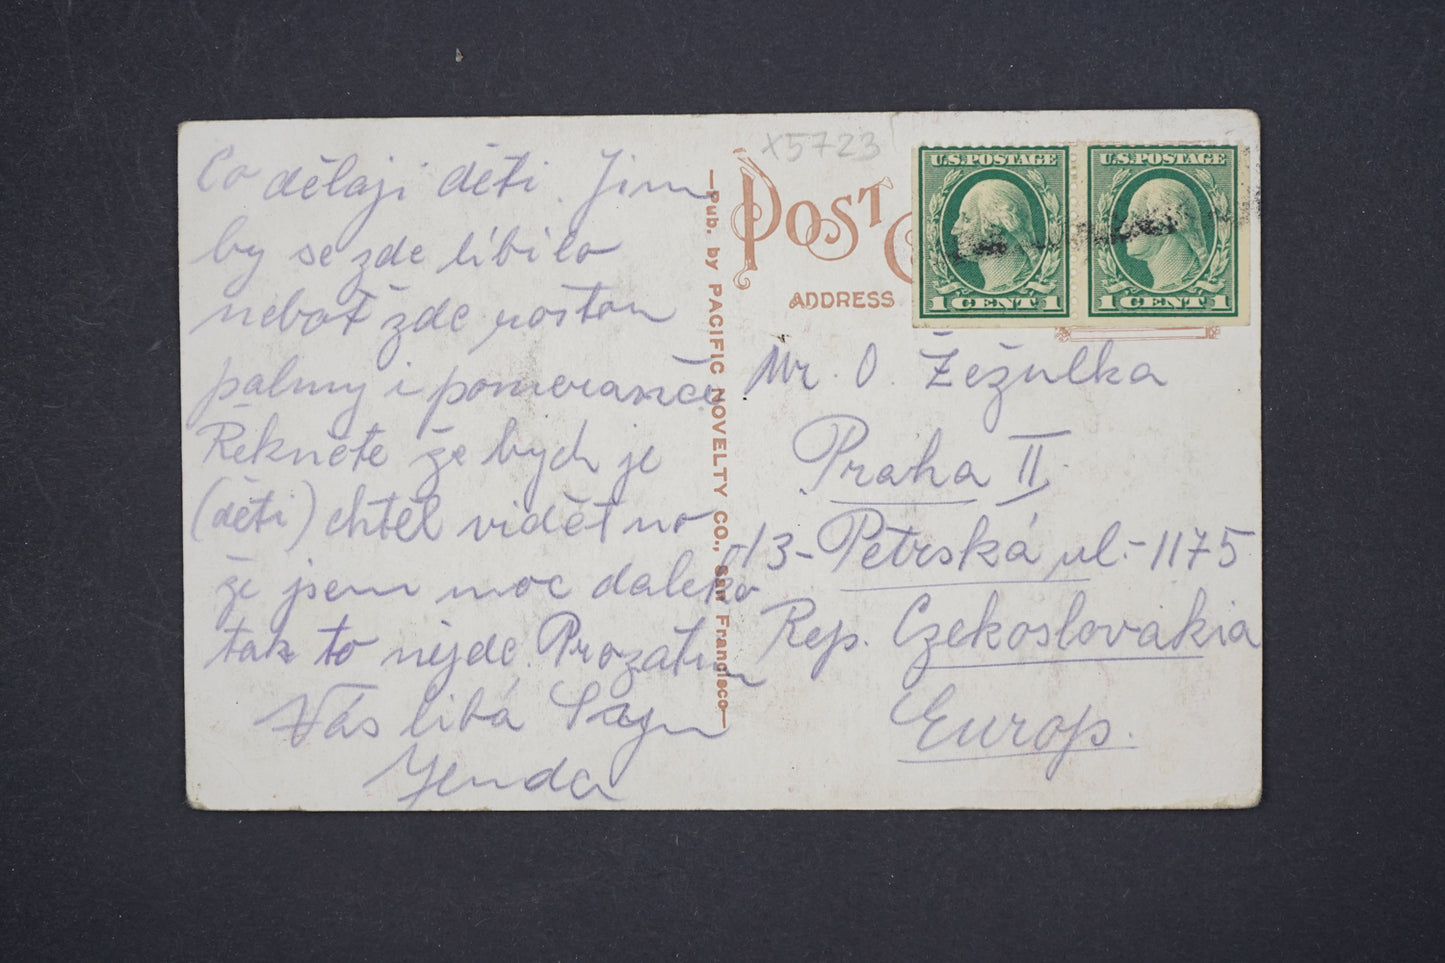 Co dělaji děti. Jim
by se zde libilo
neboť zde rostou
palmy i pomeranče
Řekněte že bych je
(děti) chtěl vidět no
že jsem moc daleko
tak to nejde. Prozatim
Vás libá
Jenda
Pub. by PACIFIC NOVELTY CO., San Francisco
X5723
POST C
ADDRESS
U.S. POSTAGE
1 CENT 1
U.S. POSTAGE
1 CENT 1
Mr. O. Žežulka
Praha II
13-Petrská ul.-1175
Rep. Czekoslovakia
Europ.